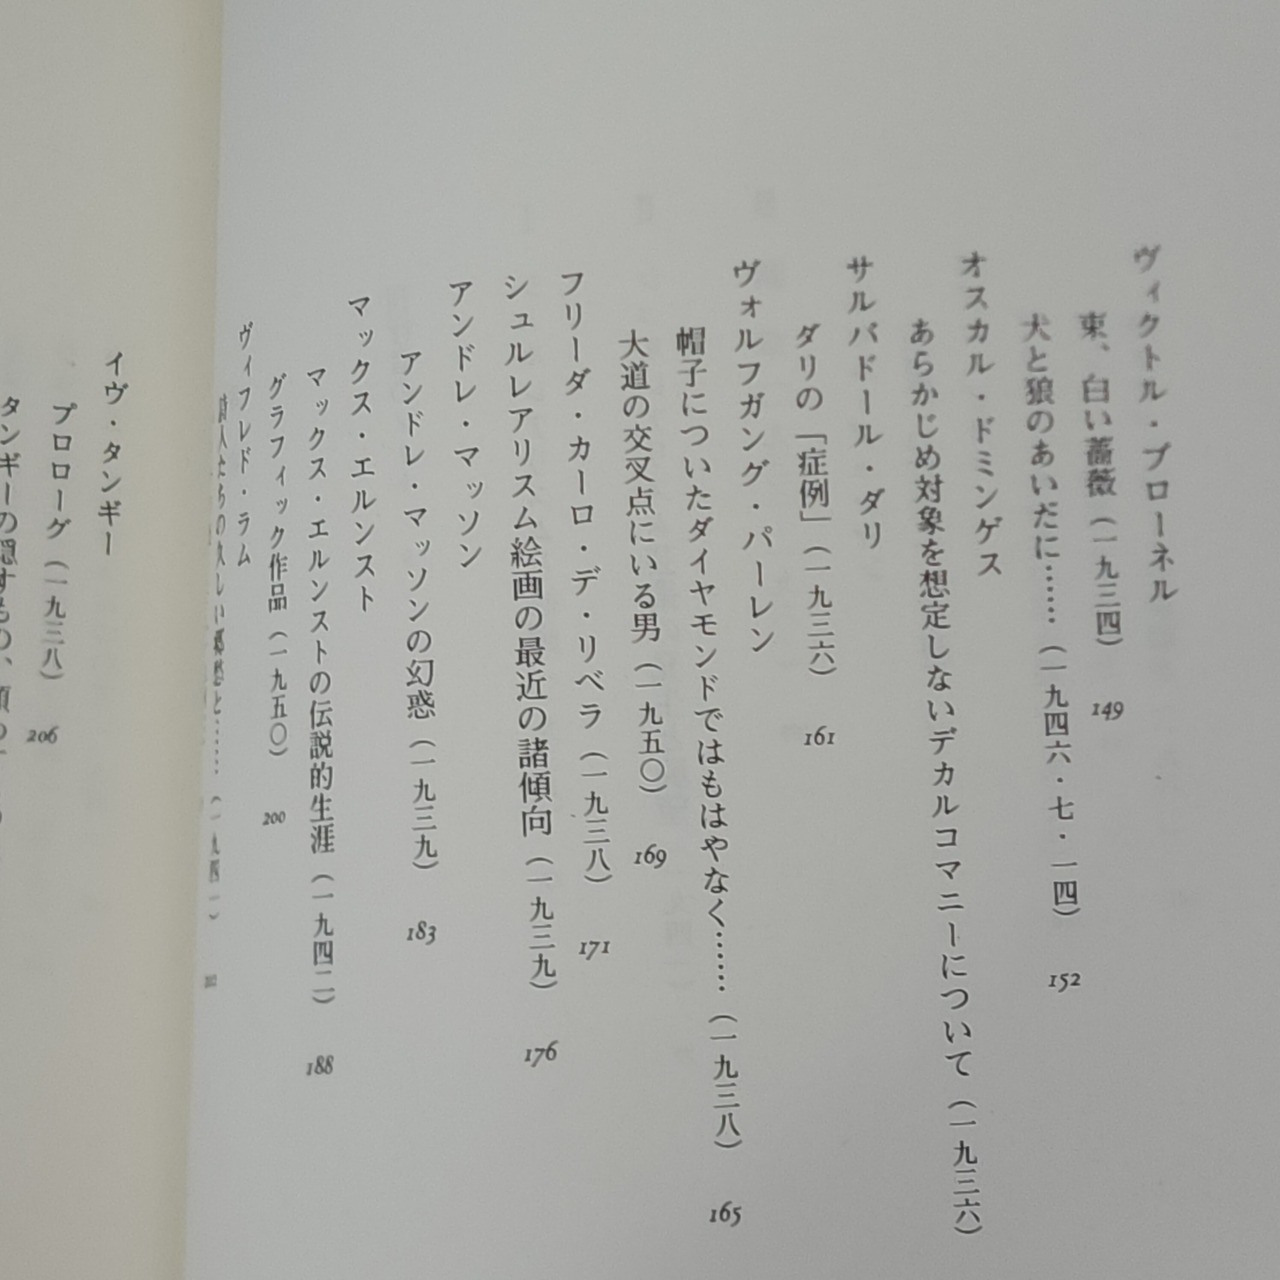 ヴィクトル・ブローネル
東、白い薔薇（一九三四） 149
犬と狼のあいだに……（一九四六・七・一四） 152
オスカル・ドミンゲス
あらかじめ対象を想定しないデカルコマニーについて（一九三六）
サルバドール・ダリ
ダリの「症例」（一九三六） 161
ヴォルフガング・パーレン
帽子についたダイヤモンドではもはやなく……（一九三八） 165
大道の交叉点にいる男（一九五〇） 169
フリーダ・カーロ・デ・リベラ（一九三八） 171
シュルレアリスム絵画の最近の諸傾向（一九三九） 176
アンドレ・マッソン
アンドレ・マッソンの幻惑（一九三九） 183
マックス・エルンスト
マックス・エルンストの伝説的生涯（一九四二） 188
グラフィック作品（一九五〇） 200
ヴィフレド・ラム
詩人たちの久しい郷愁と……（一九四一） 202
イヴ・タンギー
プロローグ（一九三八） 206
タンギーの隠すもの、